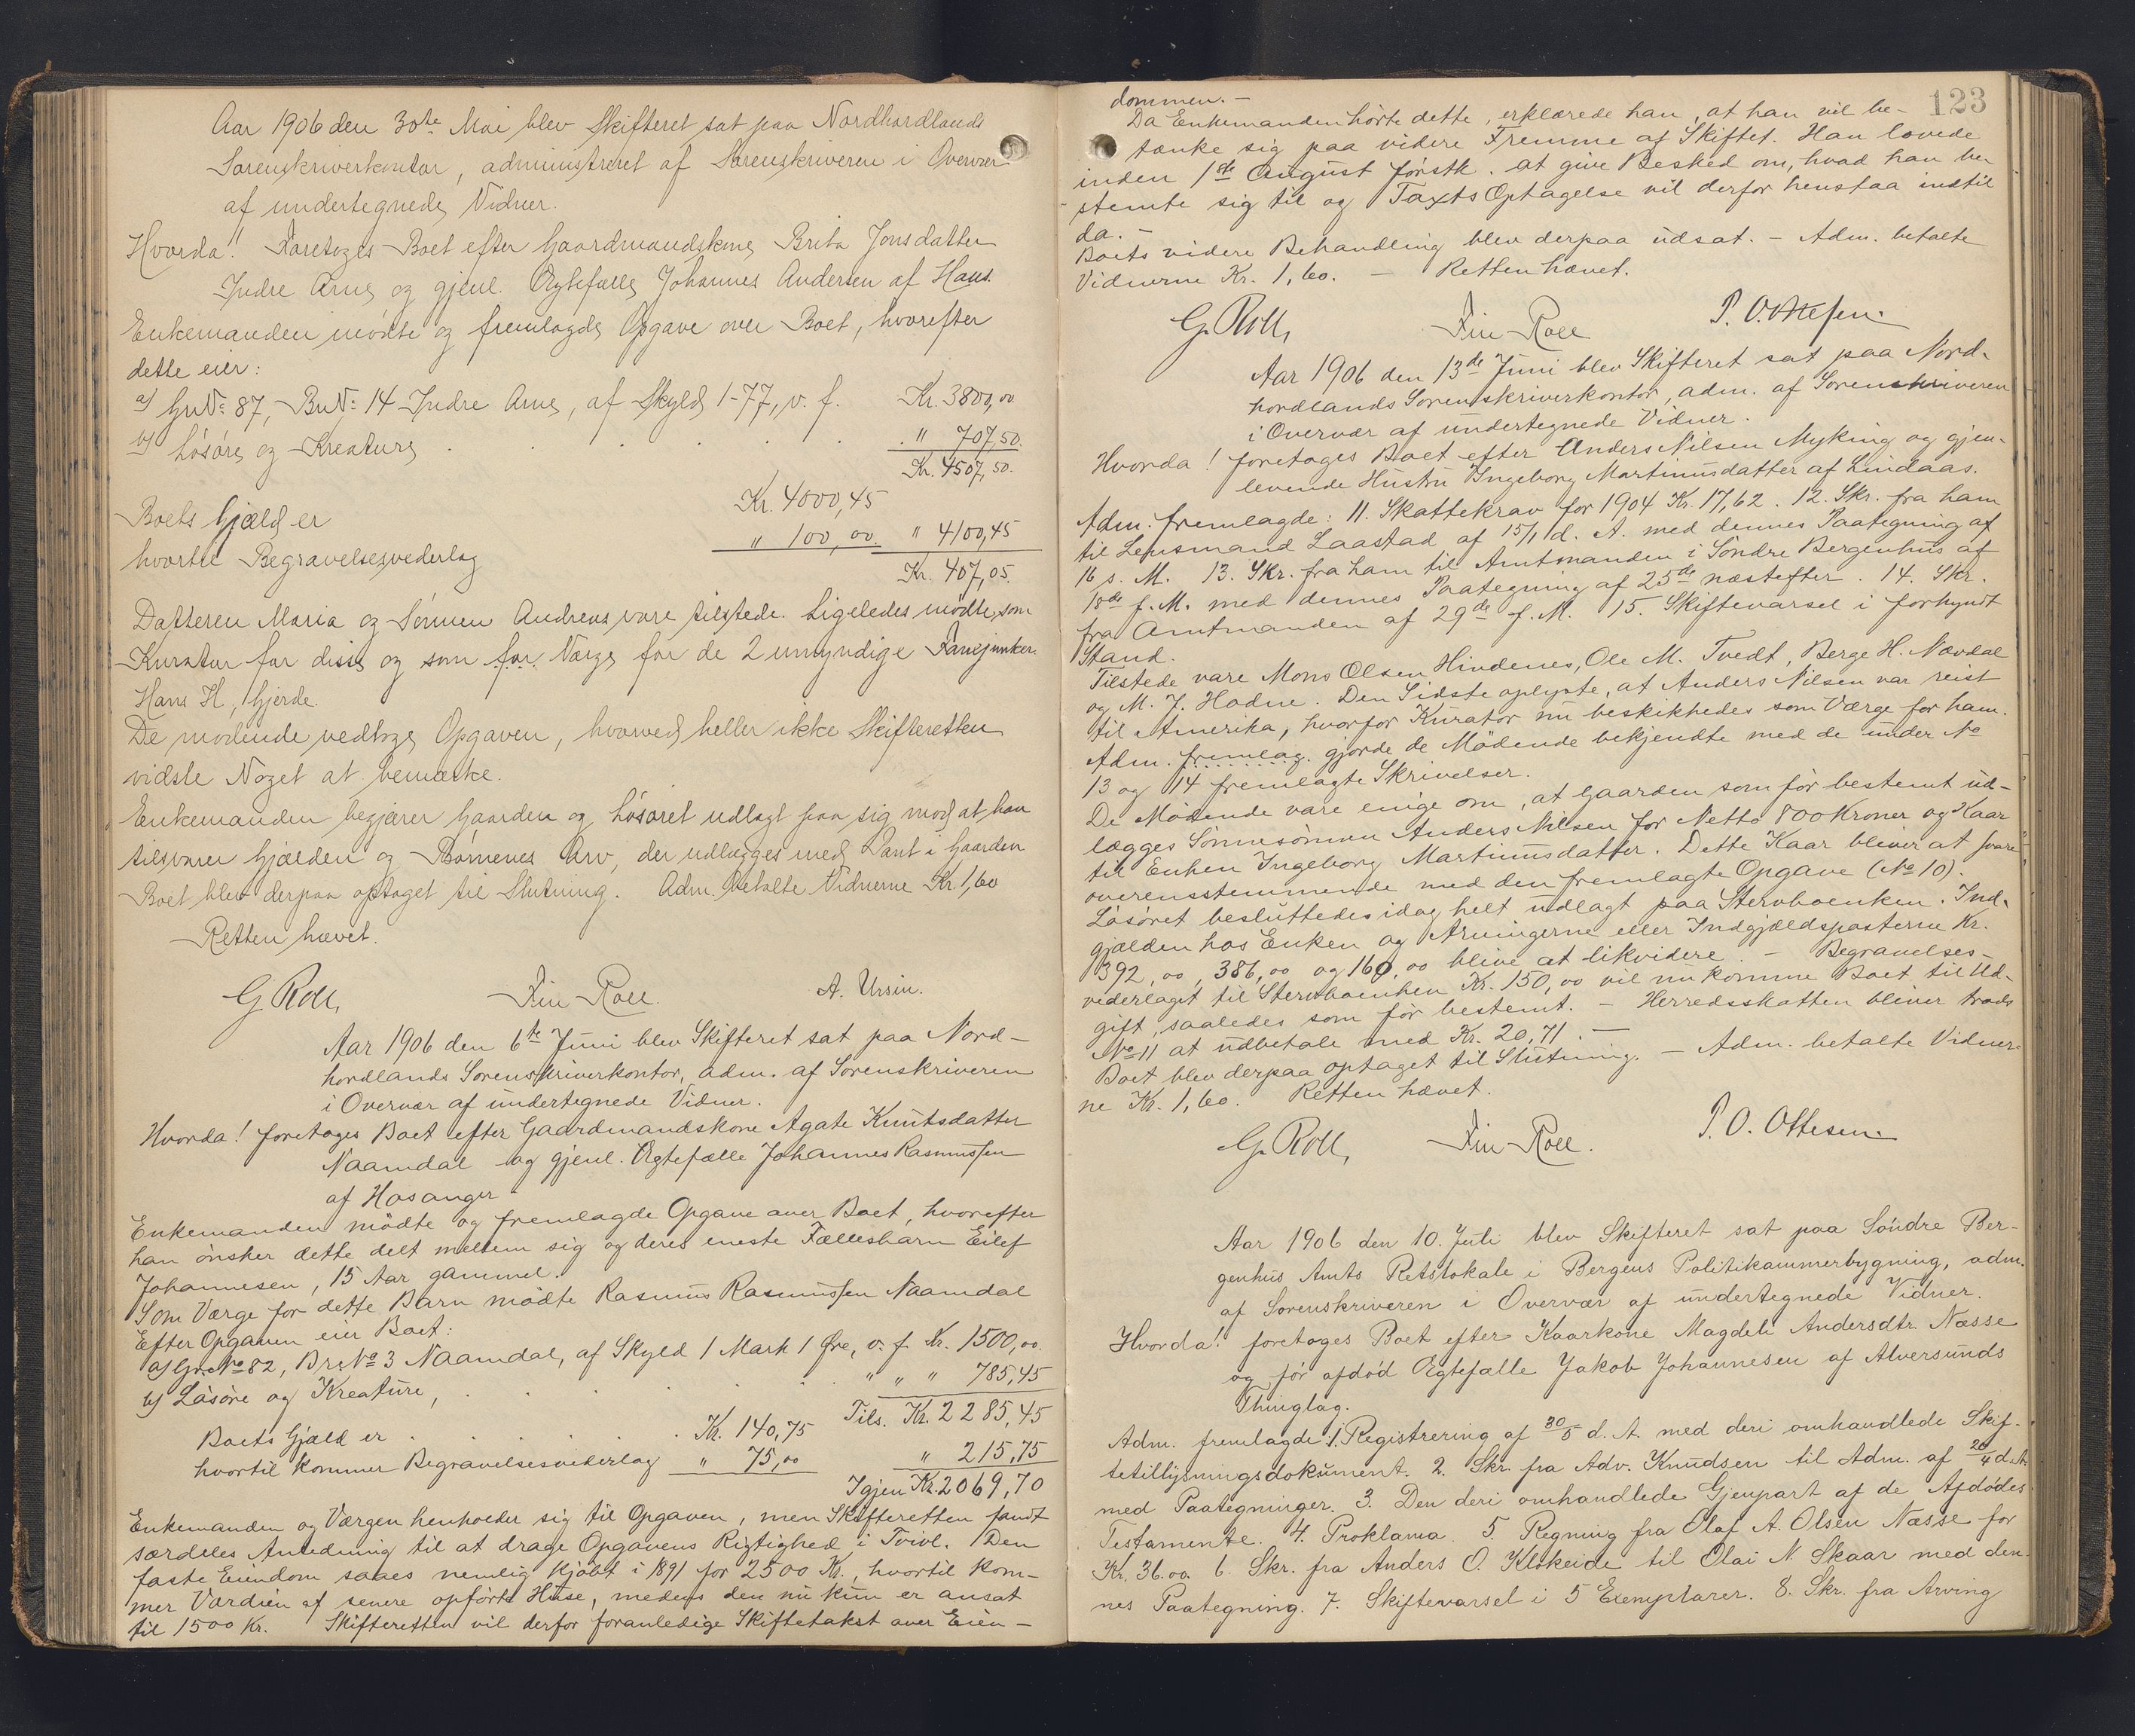 Aar 1906 den 30te Mai blev Skifteret sat paa Nordhordlands
Sorenskriverkontor, administreret af Sorenskriveren i Overvær
af undertegnede Vidner.
Hvorda! Foretoges Boet efter Gaardmandskone Brita Jonsdatter
Indre Arne og gjenl. Ægtefælle Johannes Andersen af Haus.
Enkemanden mödte og fremlagde Opgave over Boet, hvorefter
dette eier:
a) GNo 87, BNo 14 Indre Arne, af Skyld 1-77, v. f. Kr. 3800,00
b) Lösöre og Kreature . . . . . . " 707,50.
Kr. 4507,50.
Boets Gjæld er Kr. 4000,45
hvortil Begravelsesvederlag " 100,00. " 4100,45
Kr. 407,05.
Datteren Maria og Sönnen Andreas vare tilstede. Ligeledes mödte som
Kurator for disse og som for Værge for de 2 umyndige Fanejunker
Hans H. Gjerde.
De mödende vedtoge Opgaven, hvorved heller ikke Skifteretten
vidste Noget at bemærke.
Enkemanden begjærer Gaarden og Lösöret udlagt paa sig mod at han
tilsvarer Gjælden og Börnenes Arv, der udlægges med Pant i Gaarden
Boet blev derpaa optaget til Slutning. Adm. betalte Vidnerne Kr. 1,60
Retten hævet.
G. Roll, Fin Roll. A. Ursin.
Aar 1906 den 6te Juni blev Skifteret sat paa Nord-
hordlands Sorenskriverkontor, adm. af Sorenskriveren
i Overvær af undertegnede Vidner.
Hvorda! foretoges Boet efter Gaardmandskone Agate Knutsdatter
Naamdal og gjenl. Ægtefælle Johannes Rasmussen
af Hosanger
Enkemanden mödte og fremlagde Opgave over Boet, hvorefter
han önsker dette delt mellem sig og deres eneste Fællesbarn Eilef
Johannesen, 15 Aar gammel.
Som Værge for dette Barn mödte Rasmus Rasmussen Naamdal
Efter Opgaven eier Boet:
a) Gr.No 82, Br.No 3 Naamdal, af Skyld 1 Mark 1 Öre, v. f. Kr. 1500,00.
b) Lösöre og Kreature, . . . . . " " " 785,45
Tils. Kr. 2285,45
Boets Gjæld er . . . . . . Kr. 140,75
hvortil kommer Begravelsesvederlag " 75,00 " 215,75
Igjen Kr. 2069,70
Enkemanden og Værgen henholder sig til Opgaven, men Skifteretten fandt
særdeles Anledning til at drage Opgavens Rigtighed i Tvivl. Den
faste Eiendom saaes nemlig kjöbt i 1891 for 2500 Kr., hvortil kom-
mer Værdien af senere opförte Huse, medens den nu kun er ansat
til 1500 Kr. Skifteretten vil derfor foranledige Skiftetakst over Eien-
123
dommen. -
Da Enkemanden hörte dette, erklærede han, at han vil be-
tænke sig paa videre Fremme af Skiftet. Han lovede
inden 1ste August förstk. at give Besked om, hvad han be
stemte sig til og Taxts Optagelse vil derfor henstaa indtil
da. -
Boets videre Behandling blev derpaa udsat. - Adm. betalte
Vidnerne Kr. 1,60. - Retten hævet.
G. Roll, Fin Roll P. Ottesen.
Aar 1906 den 13de Juni blev Skifteret sat paa Nord-
hordlands Sorenskriverkontor, adm. af Sorenskriveren
i Overvær af undertegnede Vidner.
Hvorda! foretoges Boet efter Anders Nilsen Myking og gjen-
levende Hustru Ingeborg Martinusdatter af Lindaas.
Adm. fremlagde: 11. Skattekrav for 1904 Kr. 17,62. 12. Skr. fra ham
til Lensmand Laastad af 15/1 d. A. med dennes Paategning af
16 s. M. 13. Skr. fra ham til Amtmanden i Söndre Bergenhus af
18de f. M. med dennes Paategning af 25de næstefter. 14. Skr.
fra Amtmanden af 29de f. M. 15. Skiftevarsel i forkyndt
Stand.
Tilstede vare Mons Olsen Hindenes, Ole M. Tvedt, Berge H. Nævdal
og M. J. Hodne. Den Sidste oplyste, at Anders Nilsen var reist
til Amerika, hvorfor Kurator nu beskikkedes som Værge for ham.
Adm. fremlag. gjorde de Mödende bekjendte med de under No
13 og 14 fremlagte Skrivelser.
De Mödende vare enige om, at Gaarden som för bestemt ud-
lægges Sönnesönnen Anders Nilsen for Netto 800 Kroner og Kaar
til Enken Ingeborg Martinusdatter. Dette Kaar bliver at svare
overensstemmende med den fremlagte Opgave (No 10).
Lösöret besluttedes idag helt udlagt paa Stervboenken. Ind-
gjælden hos Enken og Arvingerne eller Indgjældsposterne Kr.
392,00, 386,00 og 160,00 blive at likvidere. - Begravelses-
vederlaget til Stervboenken Kr. 150,00 vil nu komme Boet til Ud-
gift, saaledes som för bestemt. - Herredsskatten bliver trods
No 11 at udbetale med Kr. 20,71. -
Boet blev derpaa optaget til Slutning. - Adm. betalte Vidner-
ne Kr. 1,60. Retten hævet.
G. Roll, Fin Roll. P. O. Ottesen.
Aar 1906 den 10. Juli blev Skifteret sat paa Söndre Ber-
genhus Amts Retslokale i Bergens Politikammerbygning, adm.
af Sorenskriveren i Overvær af undertegnede Vidner.
Hvorda! foretoges Boet efter Kaarkone Magdeli Andersdtr. Næsse
og för afdöd Ægtefælle Jakob Johannesen af Alversunds
Thinglag.
Adm. fremlagde: 1. Registrering af 30/5 d. A. med deri omhandlede Skif-
tetillysningsdokument. 2. Skr. fra Adv. Knudsen til Adm. af 20/4 d. A.
med Paategninger. 3. Den deri omhandlede Gjenpart af de Afdödes
Testamente. 4. Proklama. 5. Regning fra Olaf A. Olsen Næsse for
Kr. 36.00. 6. Skr. fra Anders O. Klokeide til Olai N. Skaar med den-
nes Paategning. 7. Skiftevarsel i 5 Exemplarer. 8. Skr. fra Arving